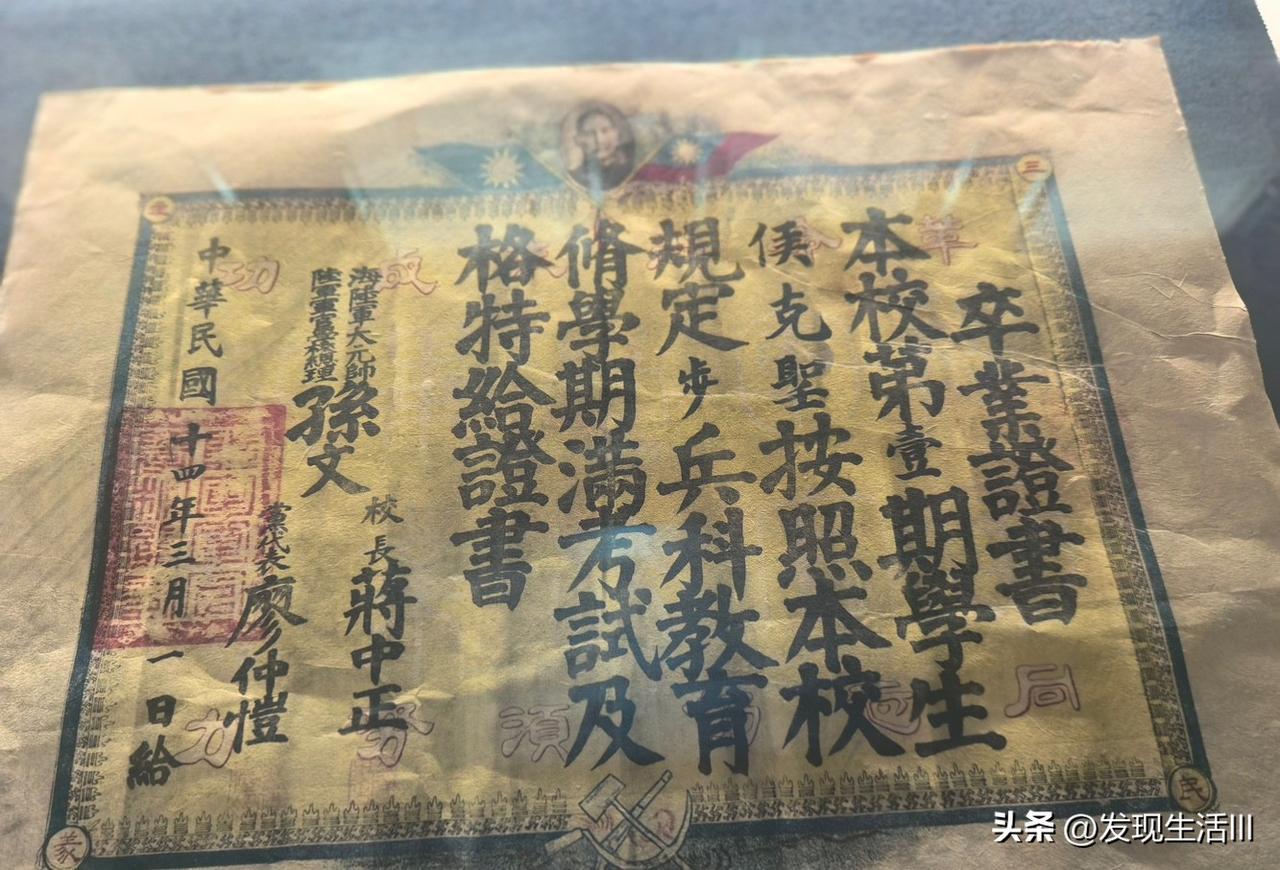 卒業證書
本校第壹期學生
侯克聖按照本校
規定步兵科教育
脩學期滿考試及
格特給證書
海陸軍大元帥
陸軍軍官學校總理
孫文
校長蔣中正
黨代表廖仲愷
中華民國十四年三月一日給
三
民
主
義
革
成功
同志
須
努力
头条 @发现生活III